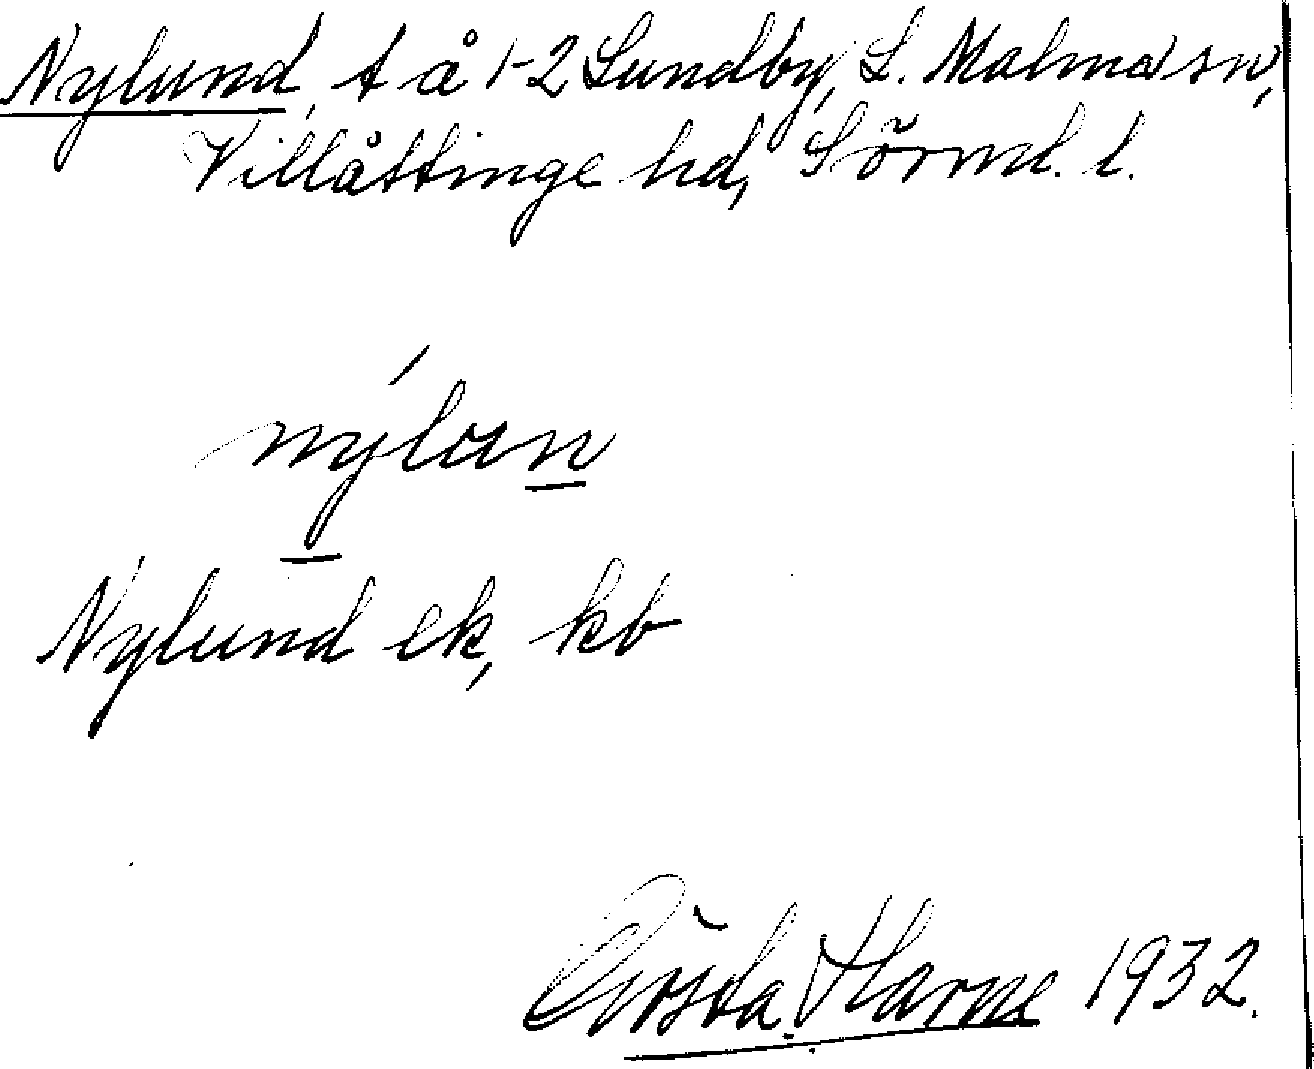 Nylund, t å 1-2 Sundby, L. Malma sn,
Villåttinge hd, Sörml. l.
nýlun
Nylund ek, kb
Gösta Harne 1932.